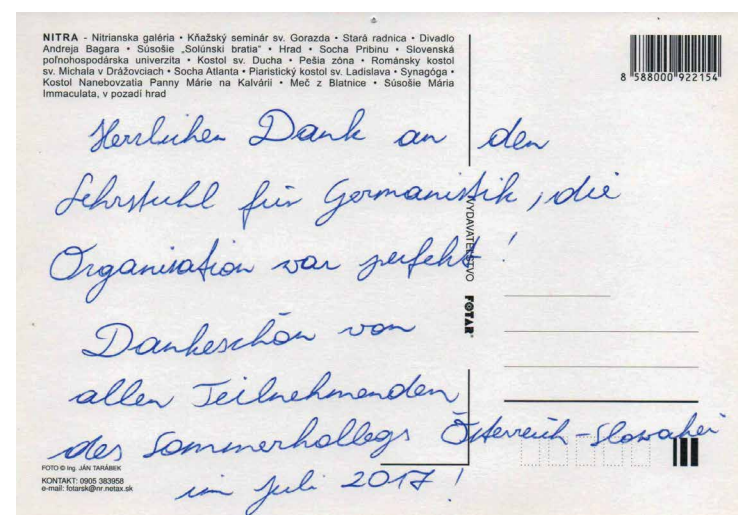 NITRA - Nitrianska galéria • Kňazský seminár sv. Gorazda • Stará radnica • Divadlo
Andreja Bagara • Súsošie „Solúnski bratia" • Hrad • Socha Pribinu • Slovenská
poľnohospodárska univerzita • Kostol sv. Ducha • Pešia zóna • Románsky kostol
sv. Michala v Drážovciach • Socha Atlanta • Piaristický kostol sv. Ladislava • Synagóga •
Kostol Nanebovzatia Panny Márie na Kalvárii • Meč z Blatnice • Súsošie Mária
Immaculata, v pozadí hrad
8 588000 922154
Herzlichen Dank an den
Lehrstuhl für Germanistik, die
Organisation war perfekt!
Dankeschön von
allen Teilnehmenden
des Sommerkollegs Österreich-Slowakei
im Juli 2017!
VYDAVATEĽSTVO FOTAR
FOTO © Ing. JÁN TARÁBEK
KONTAKT: 0905 383958
e-mail: fotarsk@nr.netax.sk